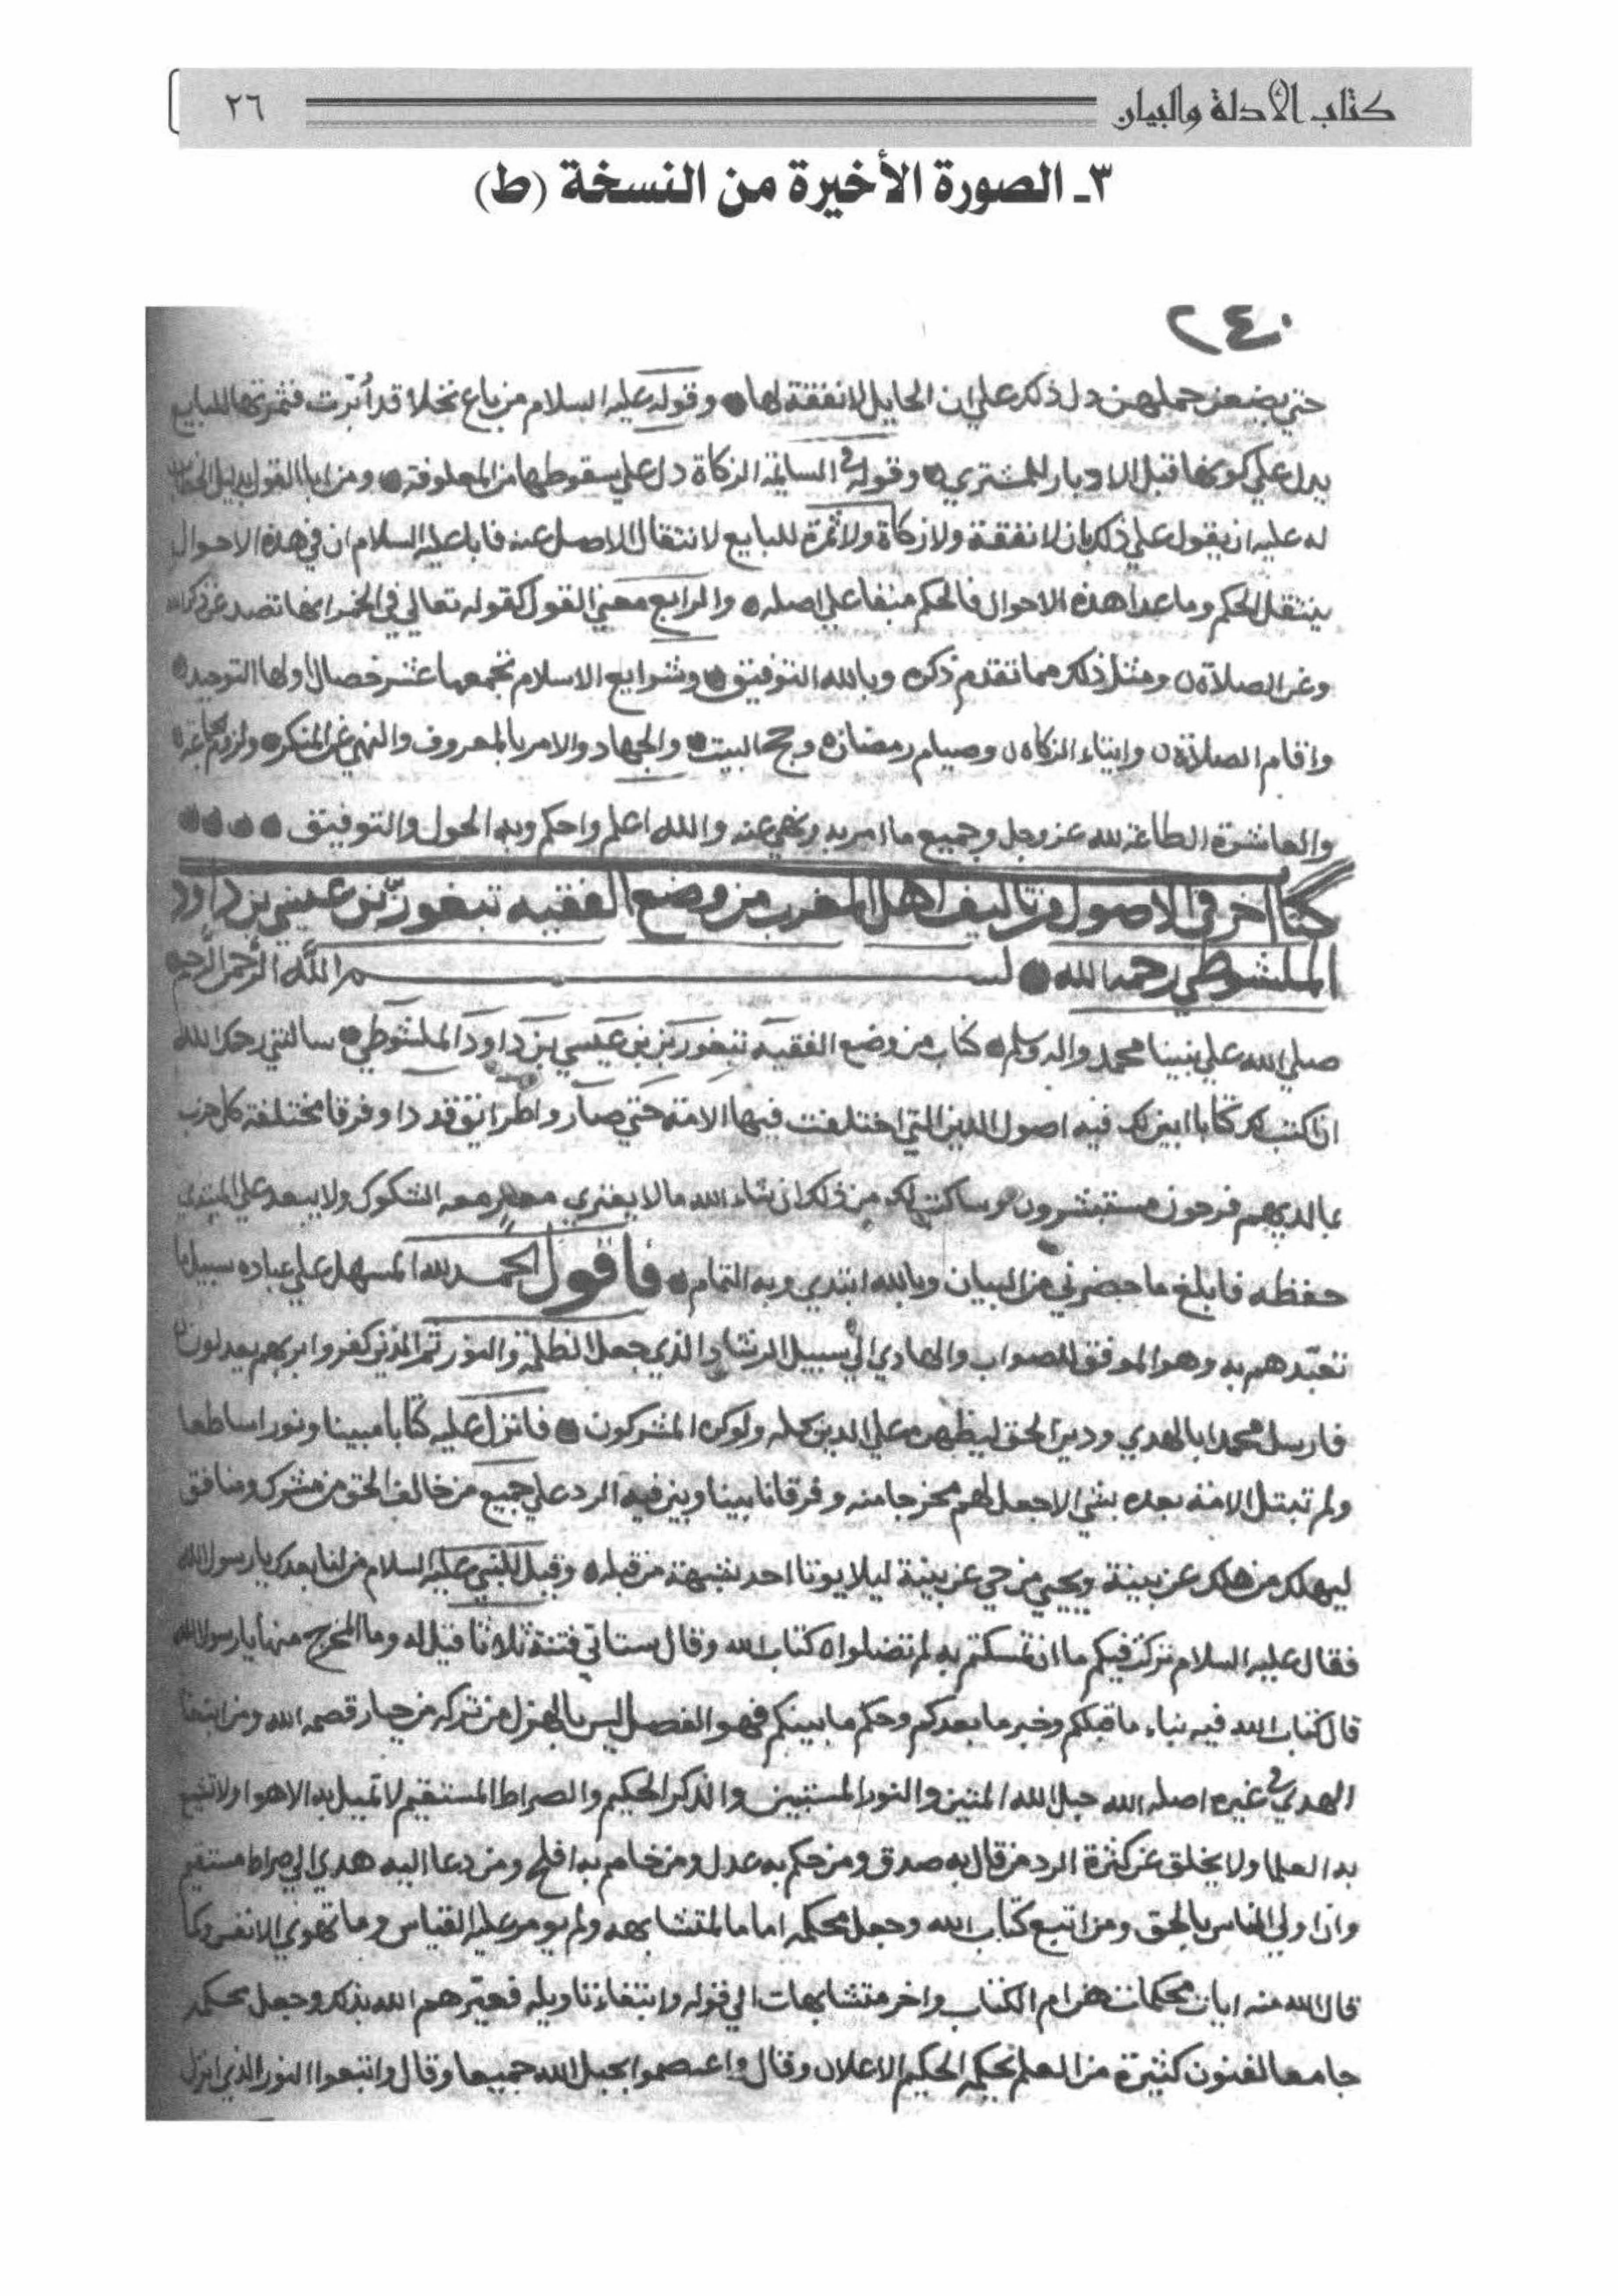 كتاب الأدلة والبيان ٢٦
٣ـ الصورة الأخيرة من النسخة (ط)
٢٤٠
حتي يضعن حملهن دل ذلك علي ان الحايل لا نفقة لها وقوله عليه السلام من باع نخلا قد أبّرت فثمرتها للبايع
يدل علي كونها قبل الادبار للمشتري وقوله في السائمة الزكاة دل علي سقوطها من المعلوفة ومن ابا القول بدليل الخطاب
له عليه ان يقول علي ذلك بان لا نفقة ولا زكاة ولا ثمرة للبايع لانتقال الاصل عنه فابا عليه السلام ان في هذه الاحوال
ينتقل الحكم وما عدا هذه الاحوال فالحكم مبقا علي اصله والرابع معني القول كقوله تعالي في الخمر انها تصد عن ذكر الله
وعن الصلاة ومثل ذلك مما تقدم ذكره وبالله التوفيق وشرايع الاسلام تجمعها عشر خصال اولها التوحيد
واقام الصلاة وايتاء الزكاه وصيام رمضان وحج البيت والجهاد والامر بالمعروف والنهي عن المنكر ولزوم الجماعة
والعاشرة الطاعة لله عز وجل وجميع ما امر به ونهي عنه والله اعلم واحكم وبه الحول والتوفيق
كتاب اخر في الاصول من تاليف اهل المغرب من وضع الفقيه تبغورين بن عيسي بن داود
الملشوطي رحمه الله بسم الله الرحمن الرحيم
صلي الله علي نبينا محمد واله وسلم كتاب من وضع الفقيه تبغورين بن عيسي بن داود الملشوطي سالتني رحمك الله
ان اكتب لك كتابا ابين لك فيه اصول الدين التي اختلفت فيها الامة حتي صاروا طرائق قددا وفرقا مختلفة كل حزب
بما لديهم فرحون مستبشرون ساكتب لك من ذلك ان شاء الله ما لا يعتري معه الشكوك ولا يبعد علي المبتدي
حفظه فابلغ ما حضرني من البيان وبالله ابتدي وبه التمام فاقول الحمد لله المسهل علي عباده سبيل ما
تعبّدهم به وهو الموفق للصواب والهادي الي سبيل الرشاد الذي جعل الظلمة والنور ثم الذين كفروا بربهم يعدلون
فارسل محمدا بالهدي ودين الحق ليظهره علي الدين كله ولو كره المشركون فانزل عليه كتابا مبينا ونورا ساطعا
ولم تبتل الامة بعده بشي الا جعل لهم مخرجا منه وفرقانا بينا وبين فيه الرد علي جميع من خالف الحق من مشرك ومنافق
ليهلك من هلك عن بينة ويحيي من حي عن بينة ليلا يوتا احد بشبهة من قبله وقيل للنبي عليه السلام من لنا بعدك يا رسول الله
فقال عليه السلام تركت فيكم ما ان تمسكتم به لم تضلوا كتاب الله وقال ستاتي فتنة ثلاثا قيل له وما المخرج منها يا رسول الله
قال كتاب الله فيه نباء ما قبلكم وخبر ما بعدكم وحكم ما بينكم فهو الفصل ليس بالهزل من تركه من جبار قصمه الله ومن ابتغا
الهدي في غيره اضله الله حبل الله المتين والنور المستبين والذكر الحكيم والصراط المستقيم لا تميل به الاهوا ولا تشبع
به العلما ولا يخلق عن كثرة الرد من قال به صدق ومن حكم به عدل ومن خاصم به افلح ومن دعا اليه هدي الي صراط مستقيم
وان اولي الناس بالحق ومن اتبع كتاب الله وجعل محكمه اماما لمتشابهه ولم يومر عليه القياس وما تهوي الانفس وكما
قال الله منه ايات محكمات هن ام الكتاب واخر متشابهات الي قوله وابتغاء تاويله فعيّرهم الله بذلك وجعل محكمه
جامعا لفنون كثيرة من العلم بحكمه الحكيم الاعلان وقال واعتصموا بحبل الله جميعا وقال واتبعوا النور الذي انزل